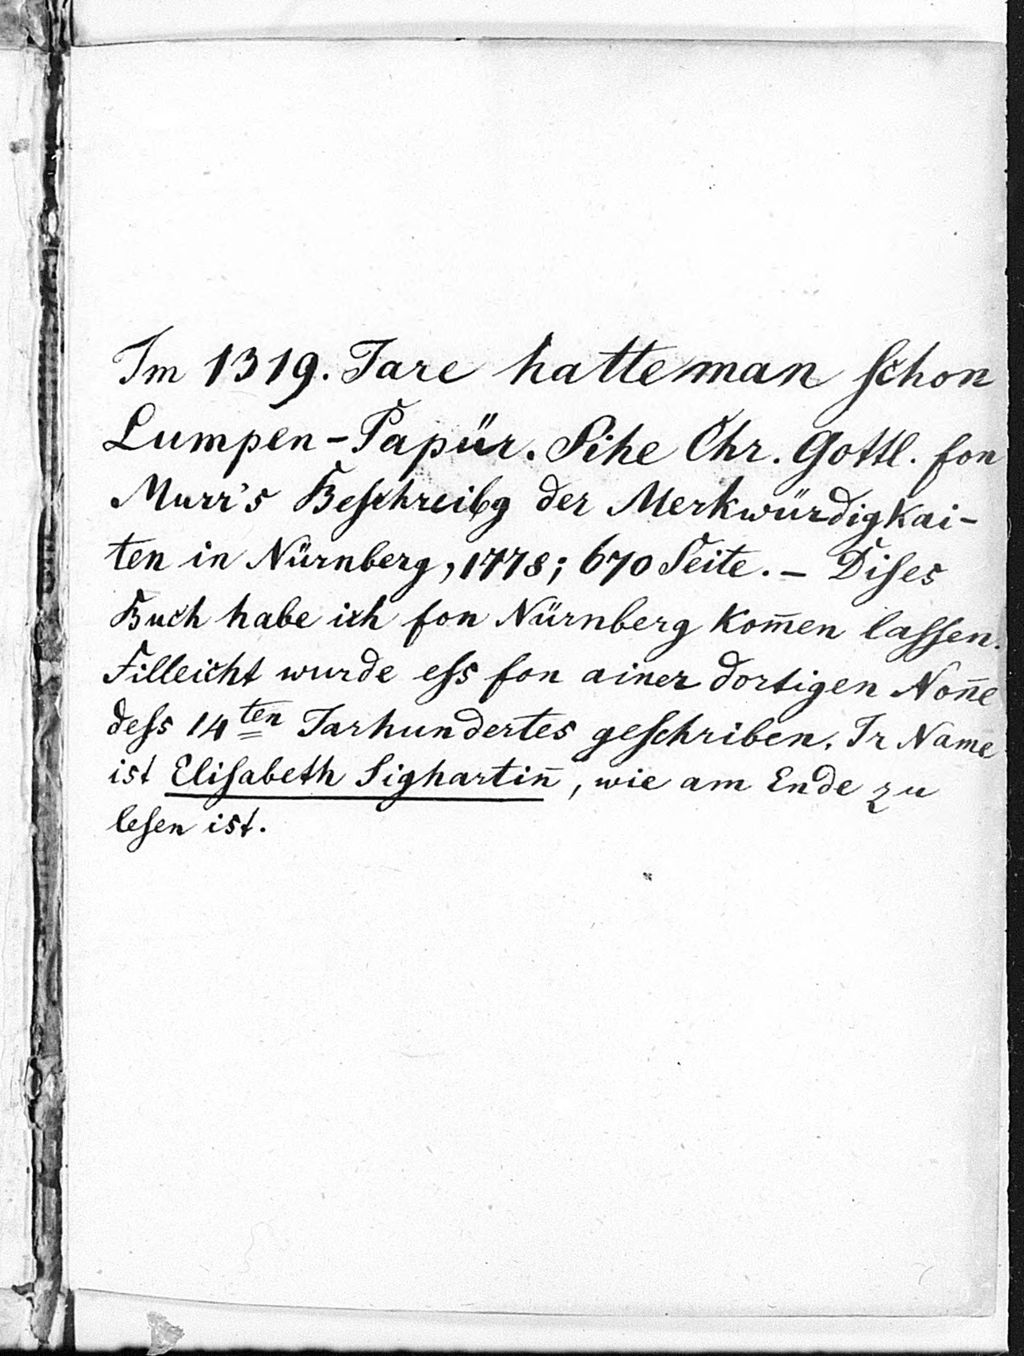 Im 1319. Jare hatte man ſchon
Lumpen-Papür. Sihe Chr. Gottl. fon
Murr's Beſchreibg der Merkwürdigkai-
ten in Nürnberg, 1778; 670 Seite. – Diſes
Buch habe ich fon Nürnberg kom̅en laſſen.
Filleicht wurde eſs fon ainer dortigen Non̅e
deſs 14ten Jarhundertes geſchriben. Ir Name
ist Eliſabeth Sighartin̅, wie am Ende zu
leſen ist.